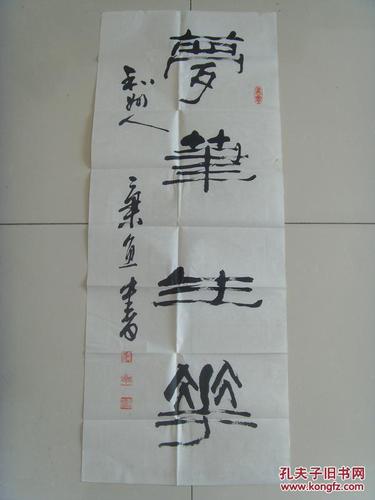 夢筆生華
和州人
書
孔夫子旧书网
www.kongfz.com